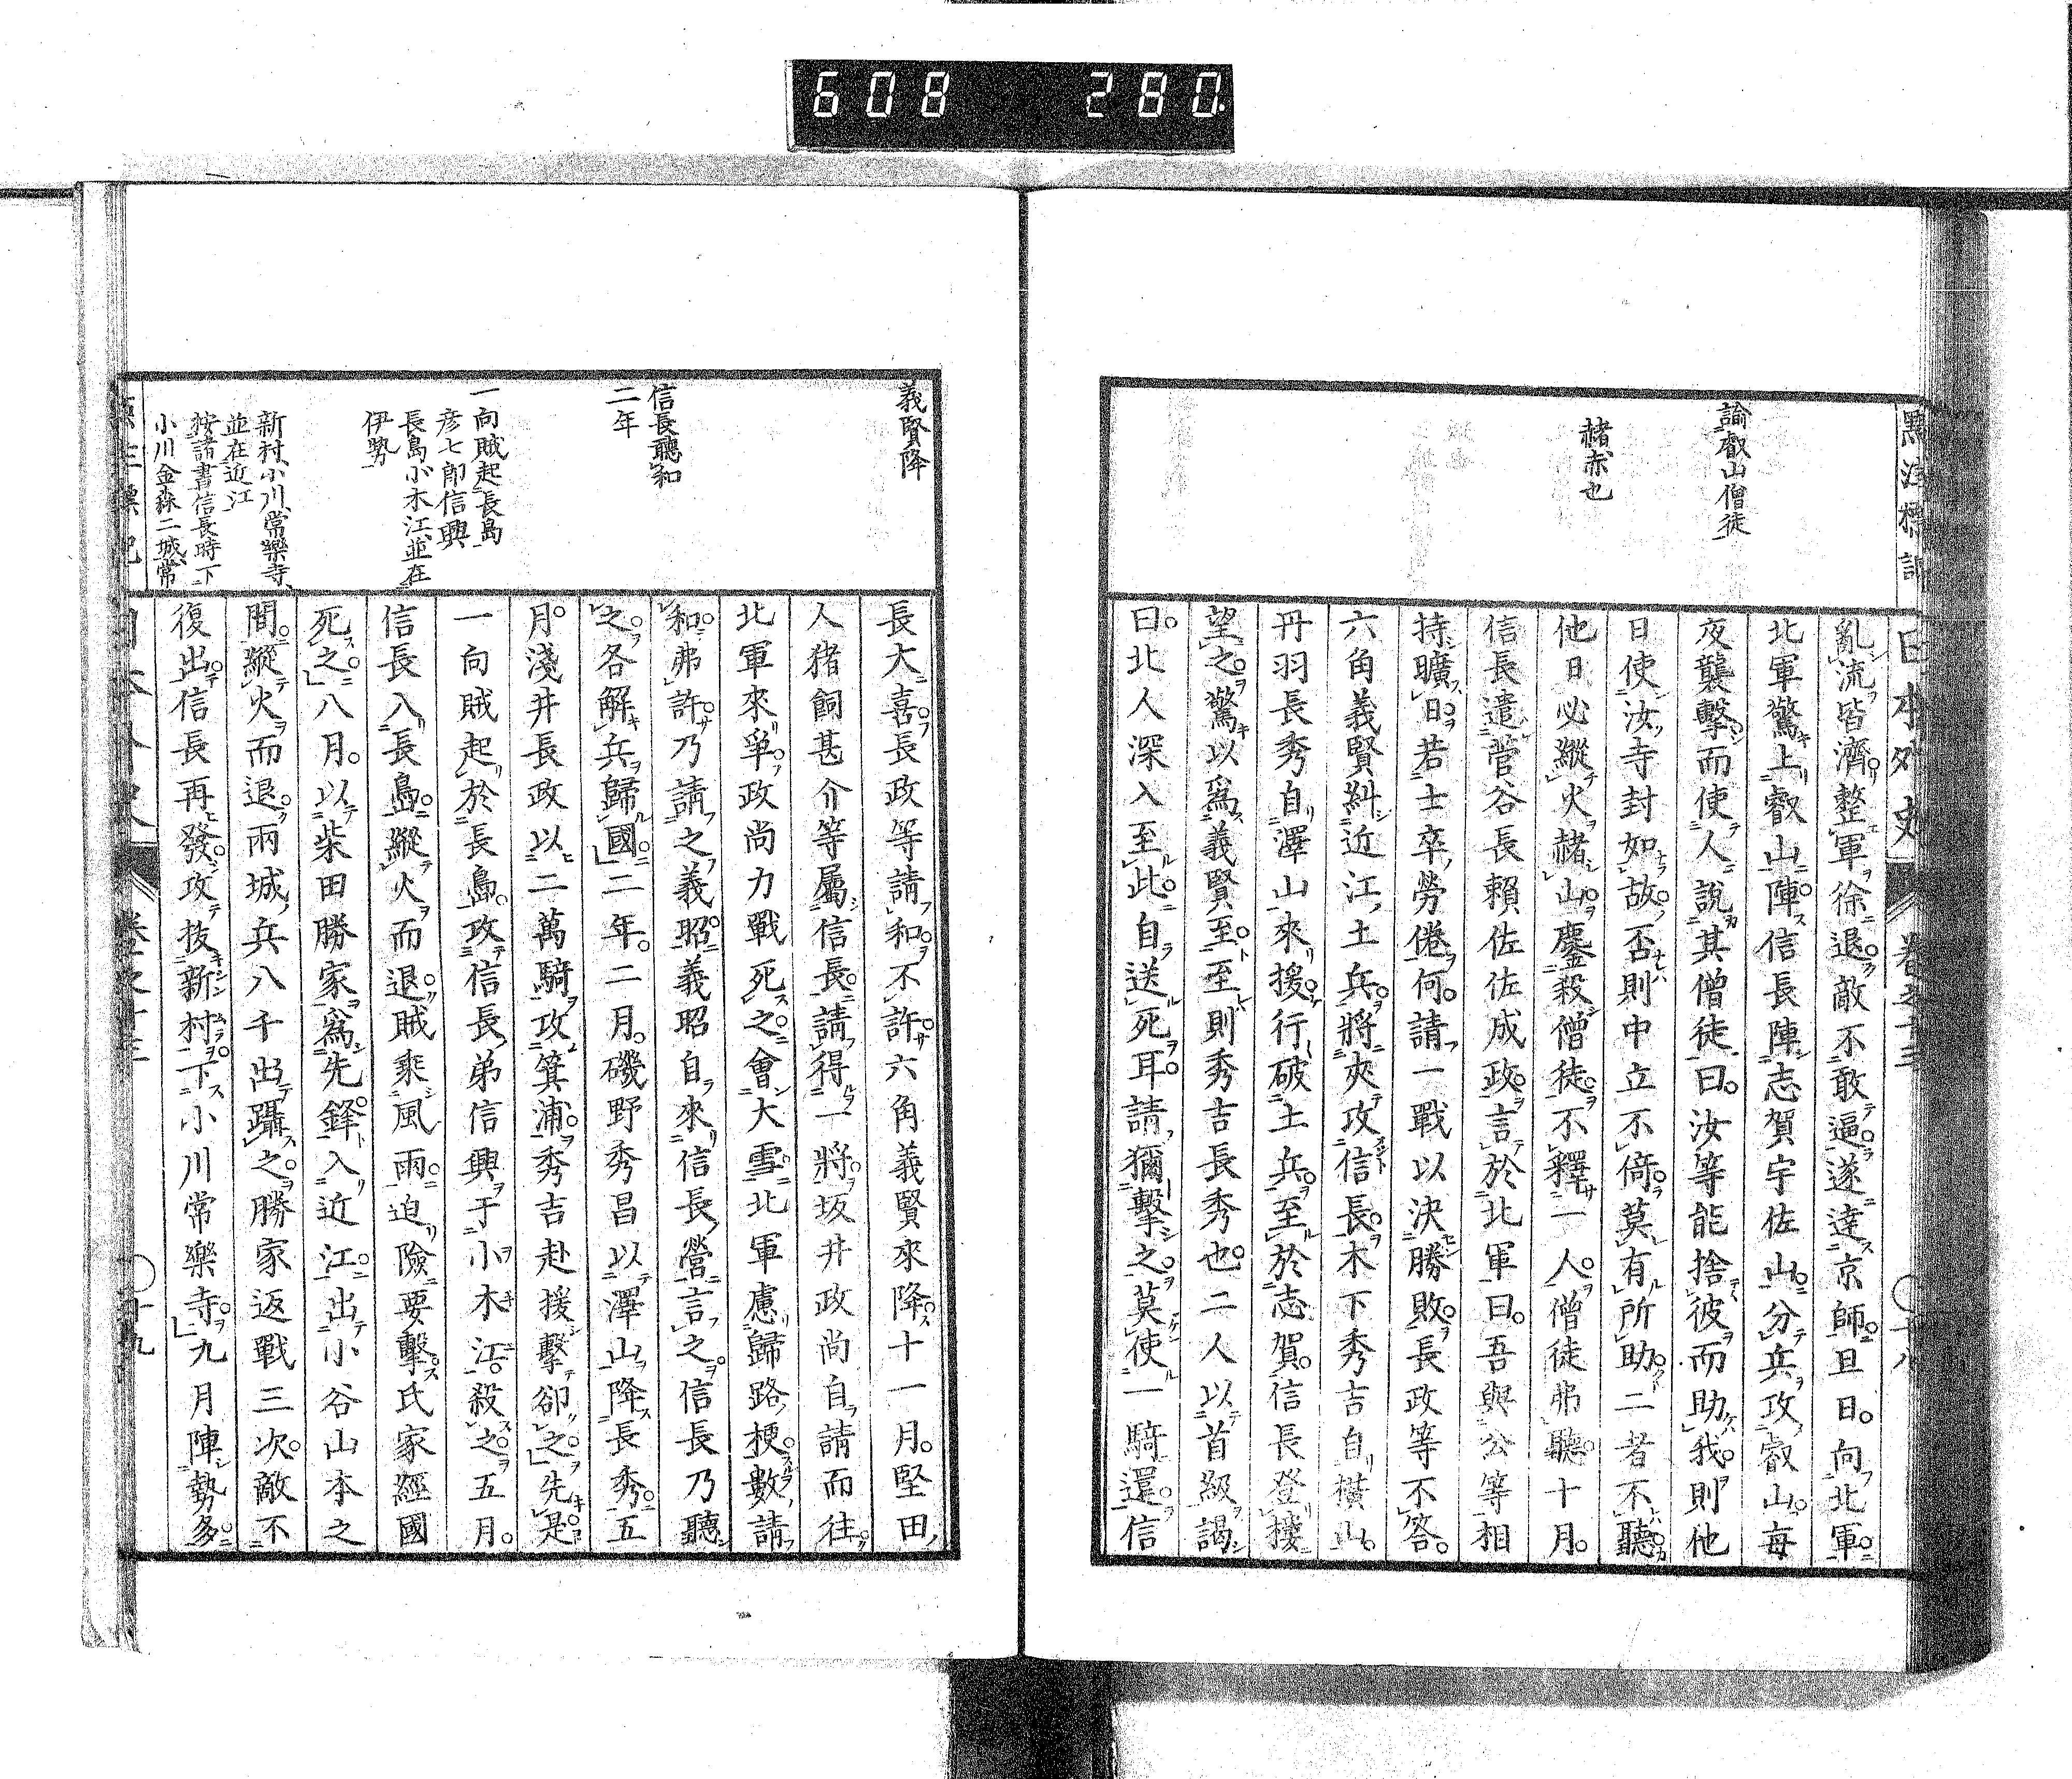 608 280.
日本外史
卷之十三
十八
諭叡山僧徒
赭赤也
亂流皆濟整軍徐退敵不敢逼遂達京師旦日向北軍
北軍驚上叡山陣信長陣志賀宇佐山分兵攻叡山每
夜襲擊而使人說其僧徒曰汝等能捨彼而助我則他
日使汝寺封如故否則中立不倚莫有所助二者不聽
他日必縱火赭山鏖殺僧徒不釋一人僧徒弗聽十月
信長遣菅谷長賴佐佐成政言於北軍曰吾與公等相
持曠日若士卒勞倦何請一戰以決勝敗長政等不答
六角義賢糾近江土兵將夾攻信長木下秀吉自橫山
丹羽長秀自澤山來援行破土兵至於志賀信長登樓
望之驚以爲義賢至至則秀吉長秀也二人以首級謁
曰北人深入至此自送死耳請獮擊之莫使一騎還信
義賢降
信長聽和
二年
一向賊起長島
彥七郎信興
長島小木江並在
伊勢
新村小川常樂寺
並在近江
按諸書信長時下
小川金森二城常
長大喜長政等請和不許六角義賢來降十一月堅田
人猪飼甚介等屬信長請得一將坂井政尚自請而往
北軍來爭政尚力戰死之會大雪北軍慮歸路梗數請
和弗許乃請之義昭義昭自來信長營言之信長乃聽
之各解兵歸國二年二月磯野秀昌以澤山降長秀五
月淺井長政以二萬騎攻箕浦秀吉赴援擊卻之先是
一向賊起於長島攻信長弟信興于小木江殺之五月
信長入長島縱火而退賊乘風雨迫險要擊氏家經國
死之八月以柴田勝家爲先鋒入近江出小谷山本之
間縱火而退兩城兵八千出躡之勝家返戰三次敵不
復出信長再發攻拔新村下小川常樂寺九月陣勢多
十九